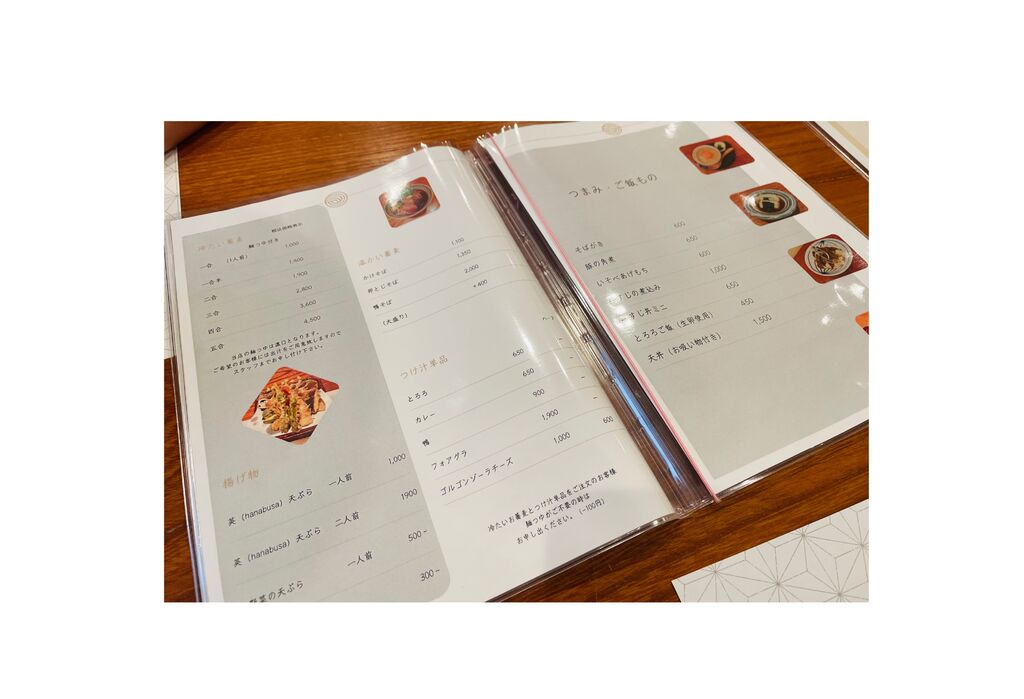 税込価格表示
冷たい蕎麦 麺つゆ付き
一合 (1人前) 1,000
一合半 1,400
二合 1,900
三合 2,800
四合 3,600
五合 4,500
当店の麺つゆは濃口となります。
ご希望のお客様には出汁をご用意致しますので
スタッフまでお申し付け下さい。
揚げ物
英 (hanabusa) 天ぷら 一人前 1,000
英 (hanabusa) 天ぷら 二人前 1900
野菜の天ぷら 一人前 500~
300~
温かい蕎麦
かけそば 1,100
卵とじそば 1,350
鴨そば 2,000
(大盛り) +400
つけ汁単品
とろろ 650
カレー 650
鴨 900
フォアグラ 1,900
ゴルゴンゾーラチーズ 1,000
600
冷たいお蕎麦とつけ汁単品をご注文のお客様
麺つゆがご不要の時は
お申し出ください。(-100円)
つまみ・ご飯もの
そばがき 600
豚の角煮 650
いそべあげもち 600
すじの煮込み 1,000
すじ丼ミニ 650
とろろご飯 (生卵使用) 450
天丼 (お吸い物付き) 1,500